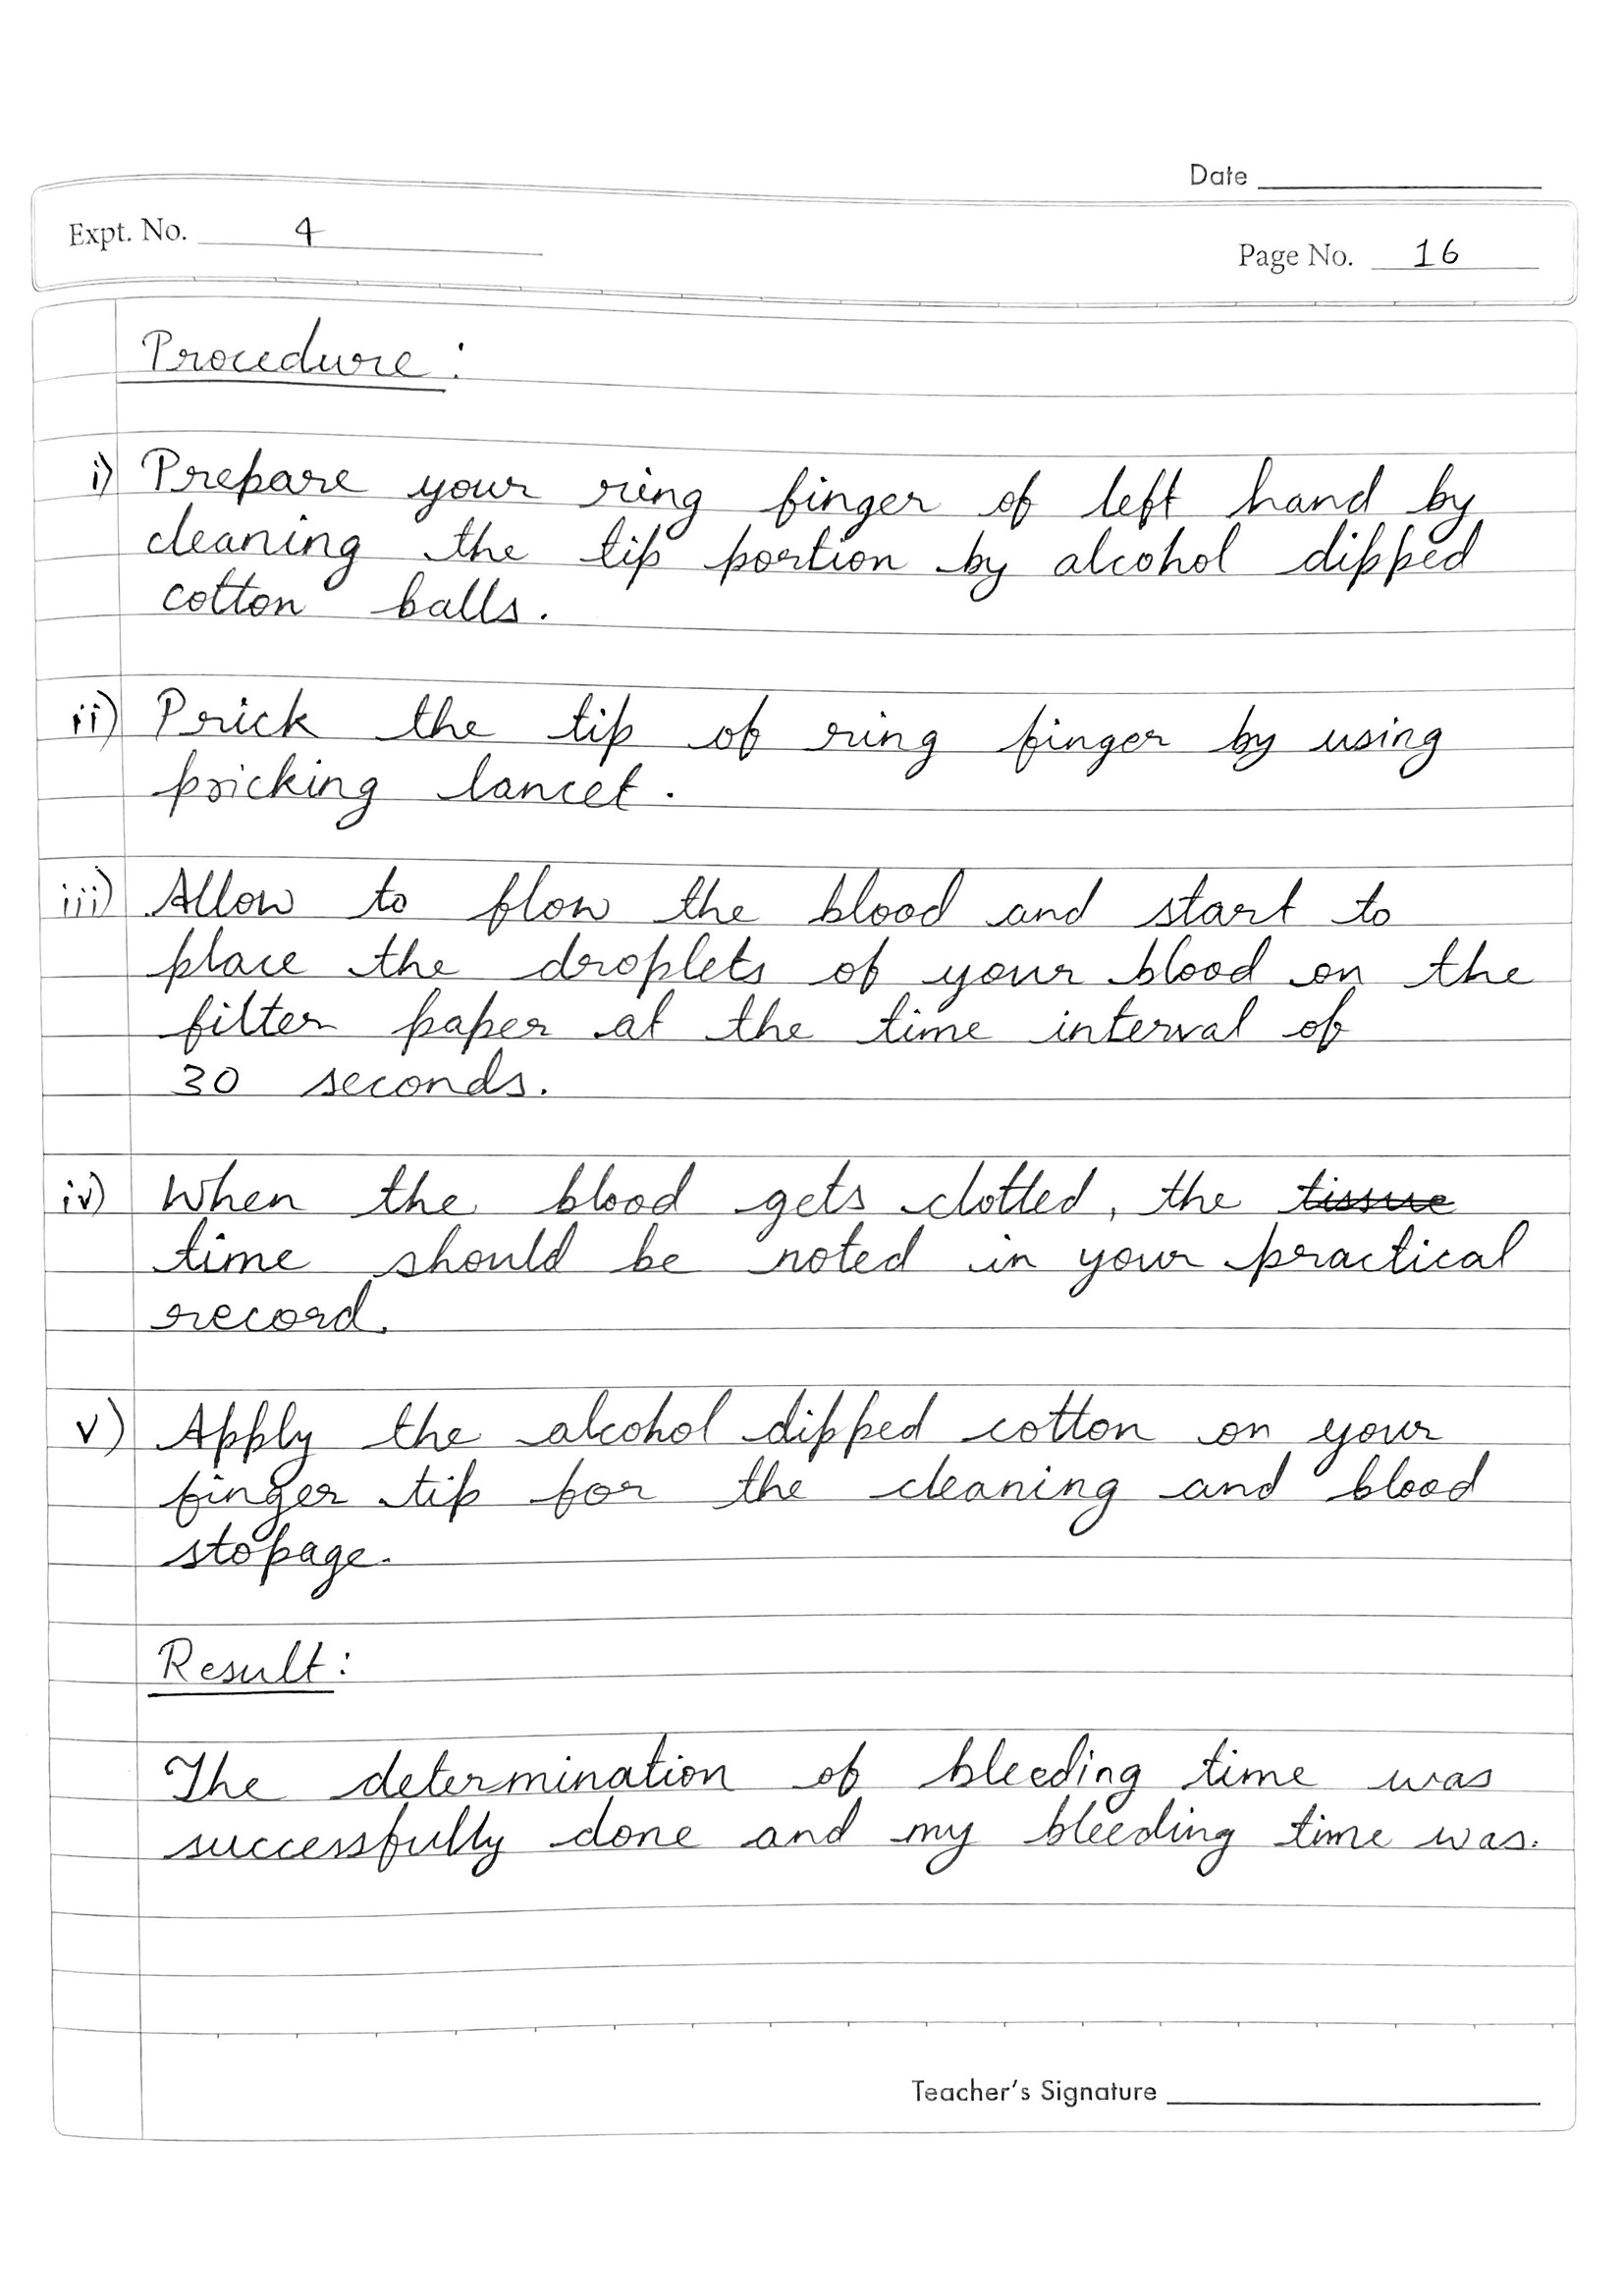 Date
Expt. No. 4
Page No. 16
Procedure :
i) Prepare your ring finger of left hand by
cleaning the tip portion by alcohol dipped
cotton balls.
ii) Prick the tip of ring finger by using
pricking lancet.
iii) Allow to flow the blood and start to
place the droplets of your blood on the
filter paper at the time interval of
30 seconds.
iv) When the blood gets clotted, the tissue
time should be noted in your practical
record.
v) Apply the alcohol dipped cotton on your
finger tip for the cleaning and blood
stopage.
Result :
The determination of bleeding time was
successfully done and my bleeding time was.
Teacher's Signature